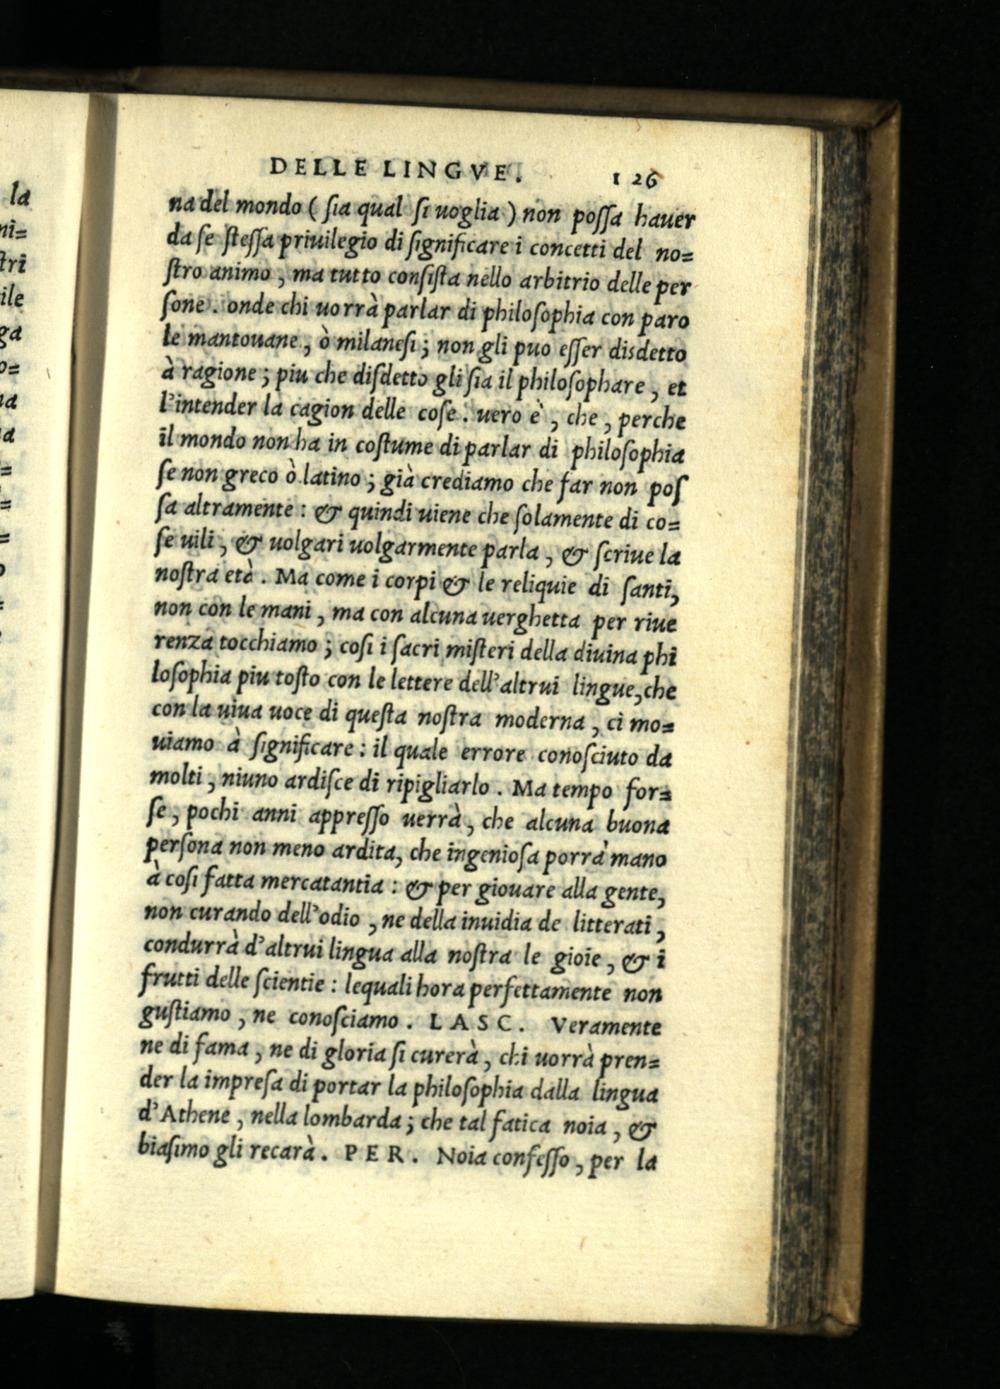 DELLE LINGVE. 126
na del mondo ( ſia qual ſi uoglia ) non poſſa hauer
da ſe ſteſſa priuilegio di ſignificare i concetti del no=
ſtro animo , ma tutto conſiſta nello arbitrio delle per
ſone . onde chi uorrà parlar di philoſophia con paro
le mantouane , ò milaneſi ; non gli puo eſſer disdetto
à ragione ; piu che diſdetto gli ſia il philoſophare , et
l'intender la cagion delle coſe . uero è , che , perche
il mondo non ha in coſtume di parlar di philoſophia
ſe non greco ò latino ; già crediamo che far non poſ
ſa altramente : & quindi uiene che ſolamente di co=
ſe uili , & uolgari uolgarmente parla , & ſcriue la
noſtra età . Ma come i corpi & le reliquie di ſanti,
non con le mani , ma con alcuna uerghetta per riue
renza tocchiamo ; coſi i ſacri miſteri della diuina phi
loſophia piu toſto con le lettere dell'altrui lingue,che
con la uiua uoce di queſta noſtra moderna , ci mo=
uiamo à ſignificare : il quale errore conoſciuto da
molti , niuno ardiſce di ripigliarlo . Ma tempo for=
ſe , pochi anni appreſſo uerrà , che alcuna buona
perſona non meno ardita, che ingenioſa porrà mano
à coſi fatta mercatantia : & per giouare alla gente,
non curando dell'odio , ne della inuidia de litterati ,
condurrà d'altrui lingua alla noſtra le gioie , & i
frutti delle ſcientie : lequali hora perfettamente non
guſtiamo , ne conoſciamo . LASC. Veramente
ne di fama , ne di gloria ſi curerà , chi uorrà pren=
der la impreſa di portar la philoſophia dalla lingua
d'Athene , nella lombarda ; che tal fatica noia , &
biaſimo gli recarà . PER. Noia confeſſo , per la